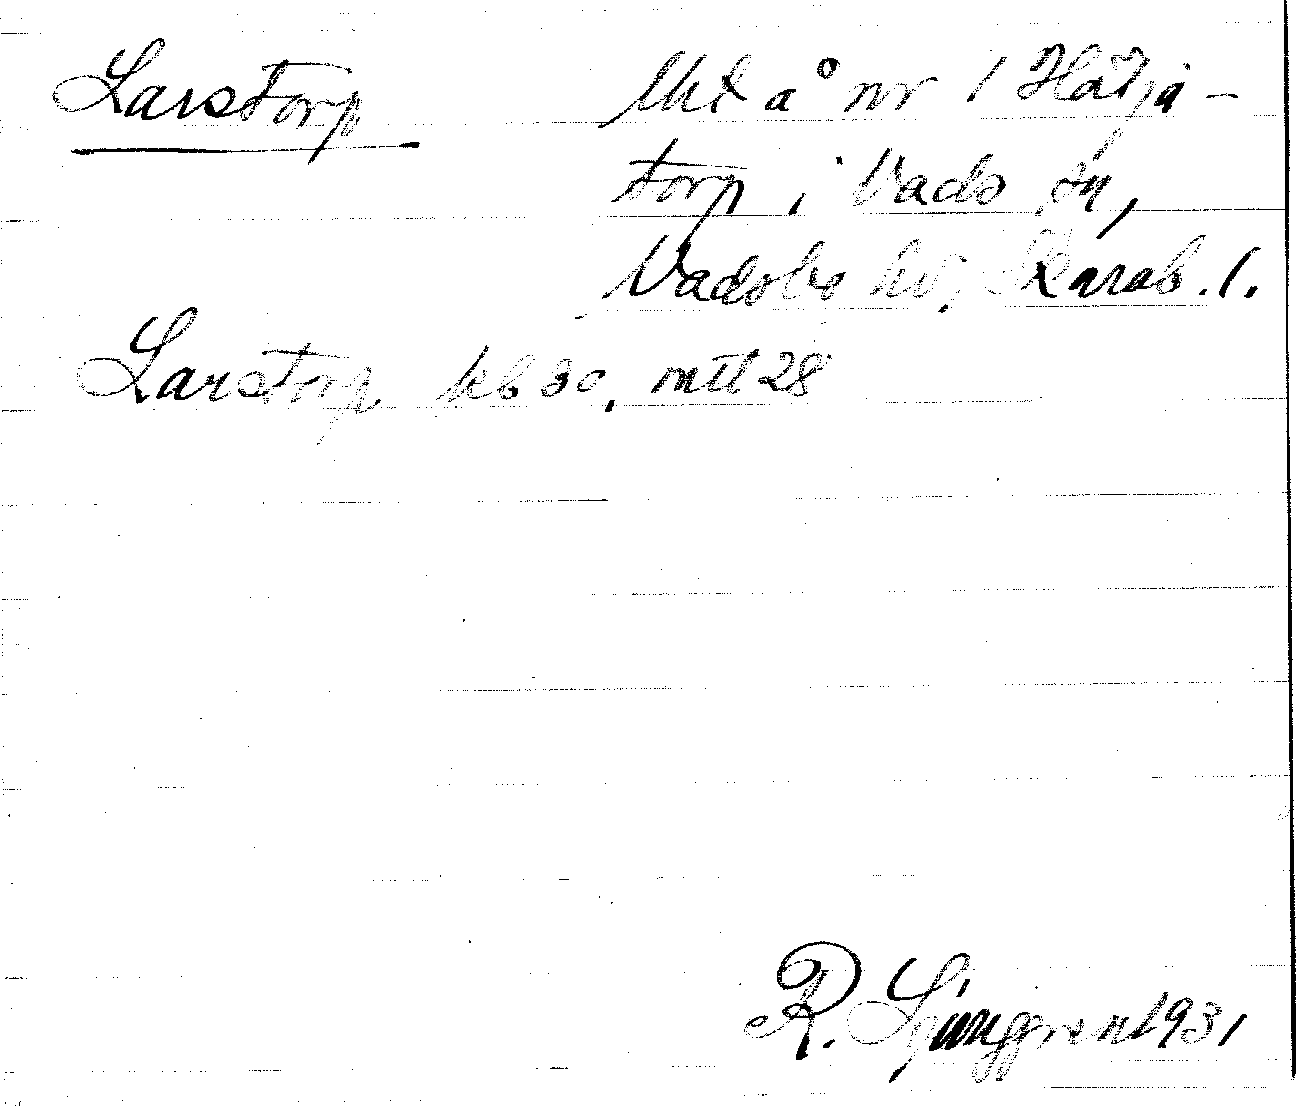 Larstorp Utt å nr 1 Hätja-
torp i Vads sn,
Vadsbo hd, Skarab. l.
Larstorp kb 30, mtl 28
R. Ljunggren 1931